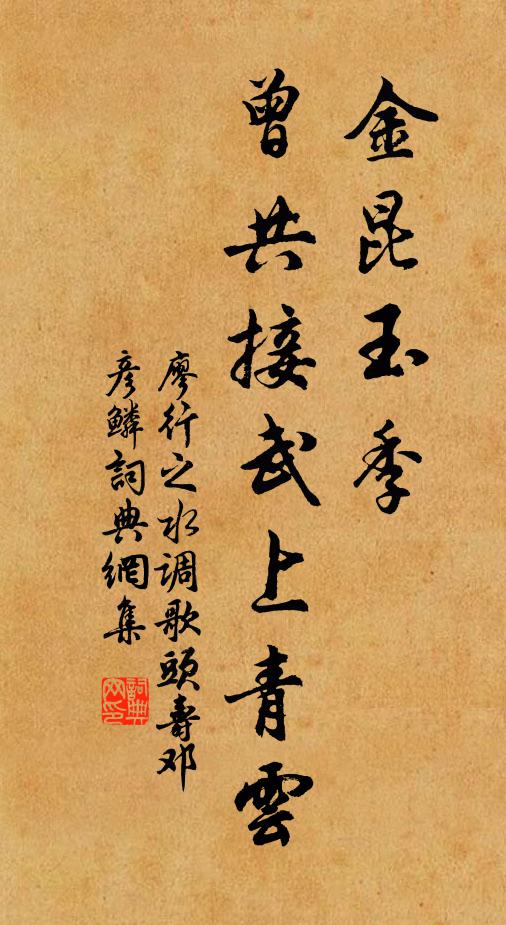 金昆玉季
曾共接武上青雲
廖行之水调歌頭壽邓
彦鱗詞典網集
詞典網印